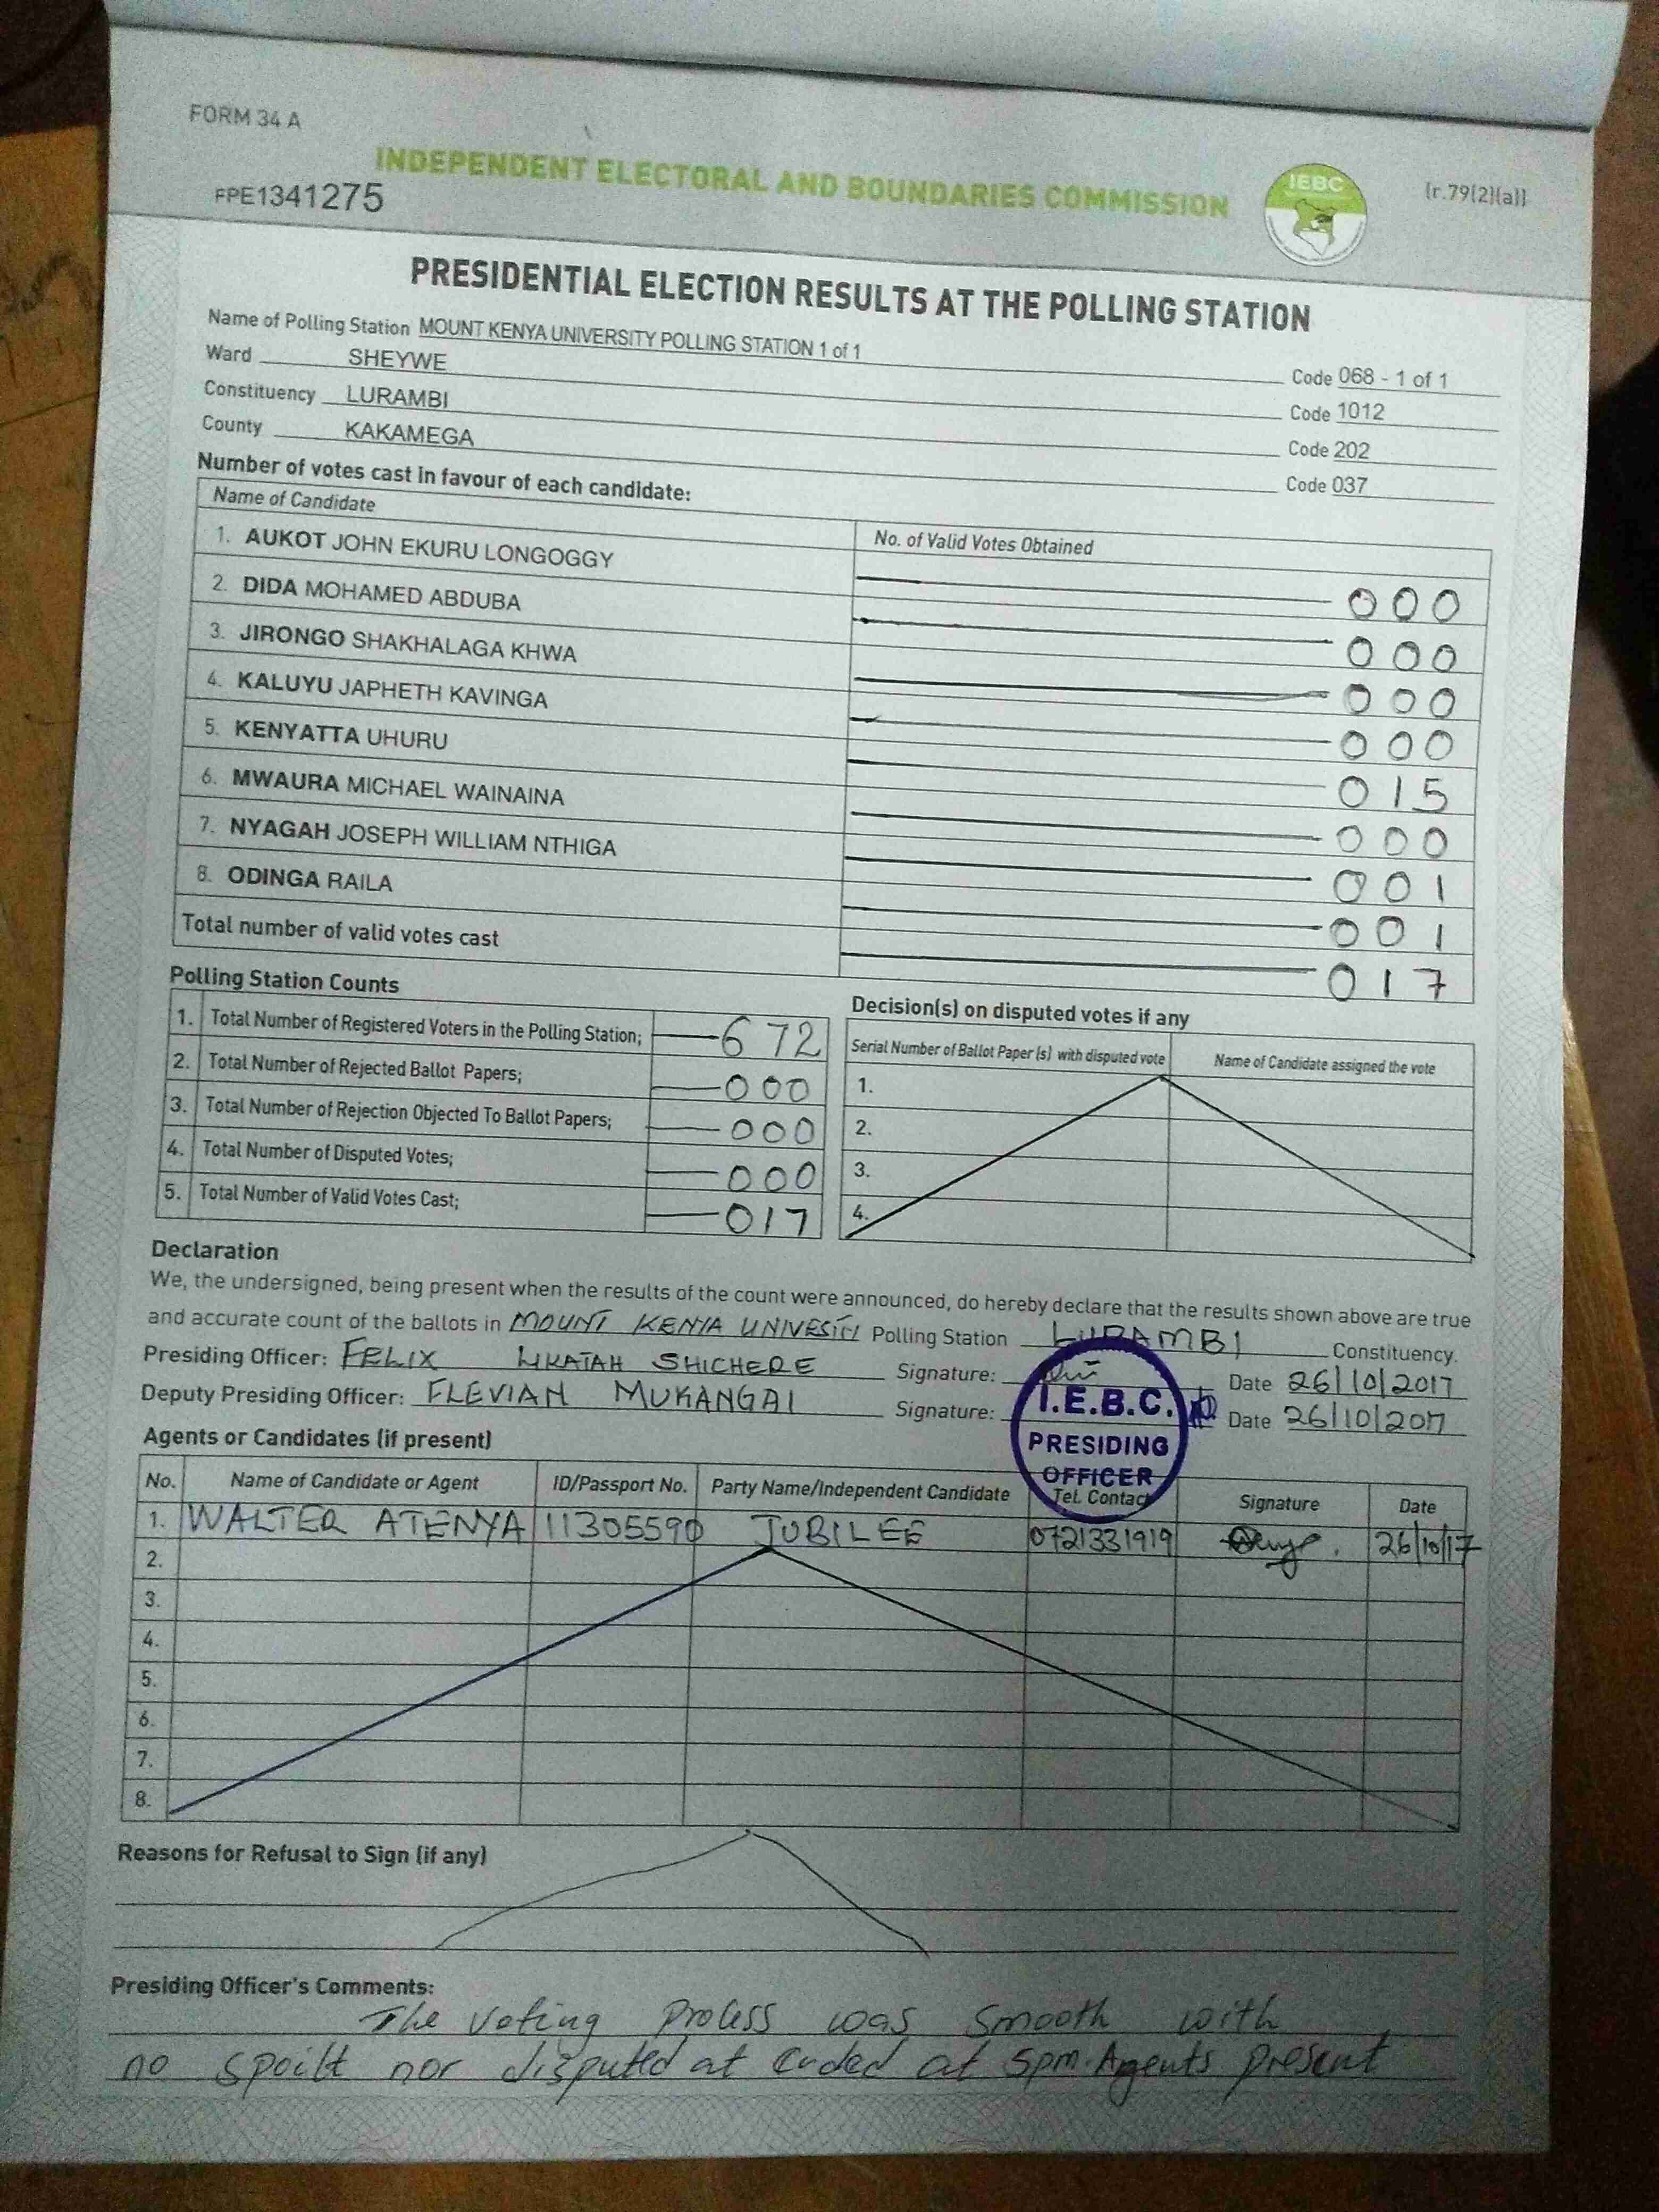 FORM 34 A
INDEPENDENT ELECTORAL AND BOUNDARIES COMMISSION
IEBC
(r.79(2)(a))
FPE1341275
PRESIDENTIAL ELECTION RESULTS AT THE POLLING STATION
Name of Polling Station MOUNT KENYA UNIVERSITY POLLING STATION 1 of 1 Code 068 - 1 of 1
Ward SHEYWE Code 1012
Constituency LURAMBI Code 202
County KAKAMEGA Code 037
Number of votes cast in favour of each candidate:
Name of Candidate No. of Valid Votes Obtained
1. AUKOT JOHN EKURU LONGOGGY 000
2. DIDA MOHAMED ABDUBA 000
3. JIRONGO SHAKHALAGA KHWA 000
4. KALUYU JAPHETH KAVINGA 000
5. KENYATTA UHURU 015
6. MWAURA MICHAEL WAINAINA 000
7. NYAGAH JOSEPH WILLIAM NTHIGA 001
8. ODINGA RAILA 001
Total number of valid votes cast 017
Polling Station Counts
1. Total Number of Registered Voters in the Polling Station; 672
2. Total Number of Rejected Ballot Papers; 000
3. Total Number of Rejection Objected To Ballot Papers; 000
4. Total Number of Disputed Votes; 000
5. Total Number of Valid Votes Cast; 017
Decision(s) on disputed votes if any
Serial Number of Ballot Paper (s) with disputed vote Name of Candidate assigned the vote
1.
2.
3.
4.
Declaration
We, the undersigned, being present when the results of the count were announced, do hereby declare that the results shown above are true
and accurate count of the ballots in MOUNT KENYA Polling Station LURAMBI Constituency.
Presiding Officer: FELIX LIKATAH SHICHERE Signature: Date 26/10/2017
Deputy Presiding Officer: FLEVIAH MUKANGAI Signature: Date 26/10/2017
I.E.B.C.
PRESIDING
OFFICER
Agents or Candidates (if present)
No. Name of Candidate or Agent ID/Passport No. Party Name/Independent Candidate Tel. Contact Signature Date
1. WALTER ATENYA 11305590 JUBILEE 0721331919 26/10/17
2.
3.
4.
5.
6.
7.
8.
Reasons for Refusal to Sign (if any)
Presiding Officer's Comments:
The voting process was smooth with
no spoilt nor disputed at ended at 5pm. Agents present